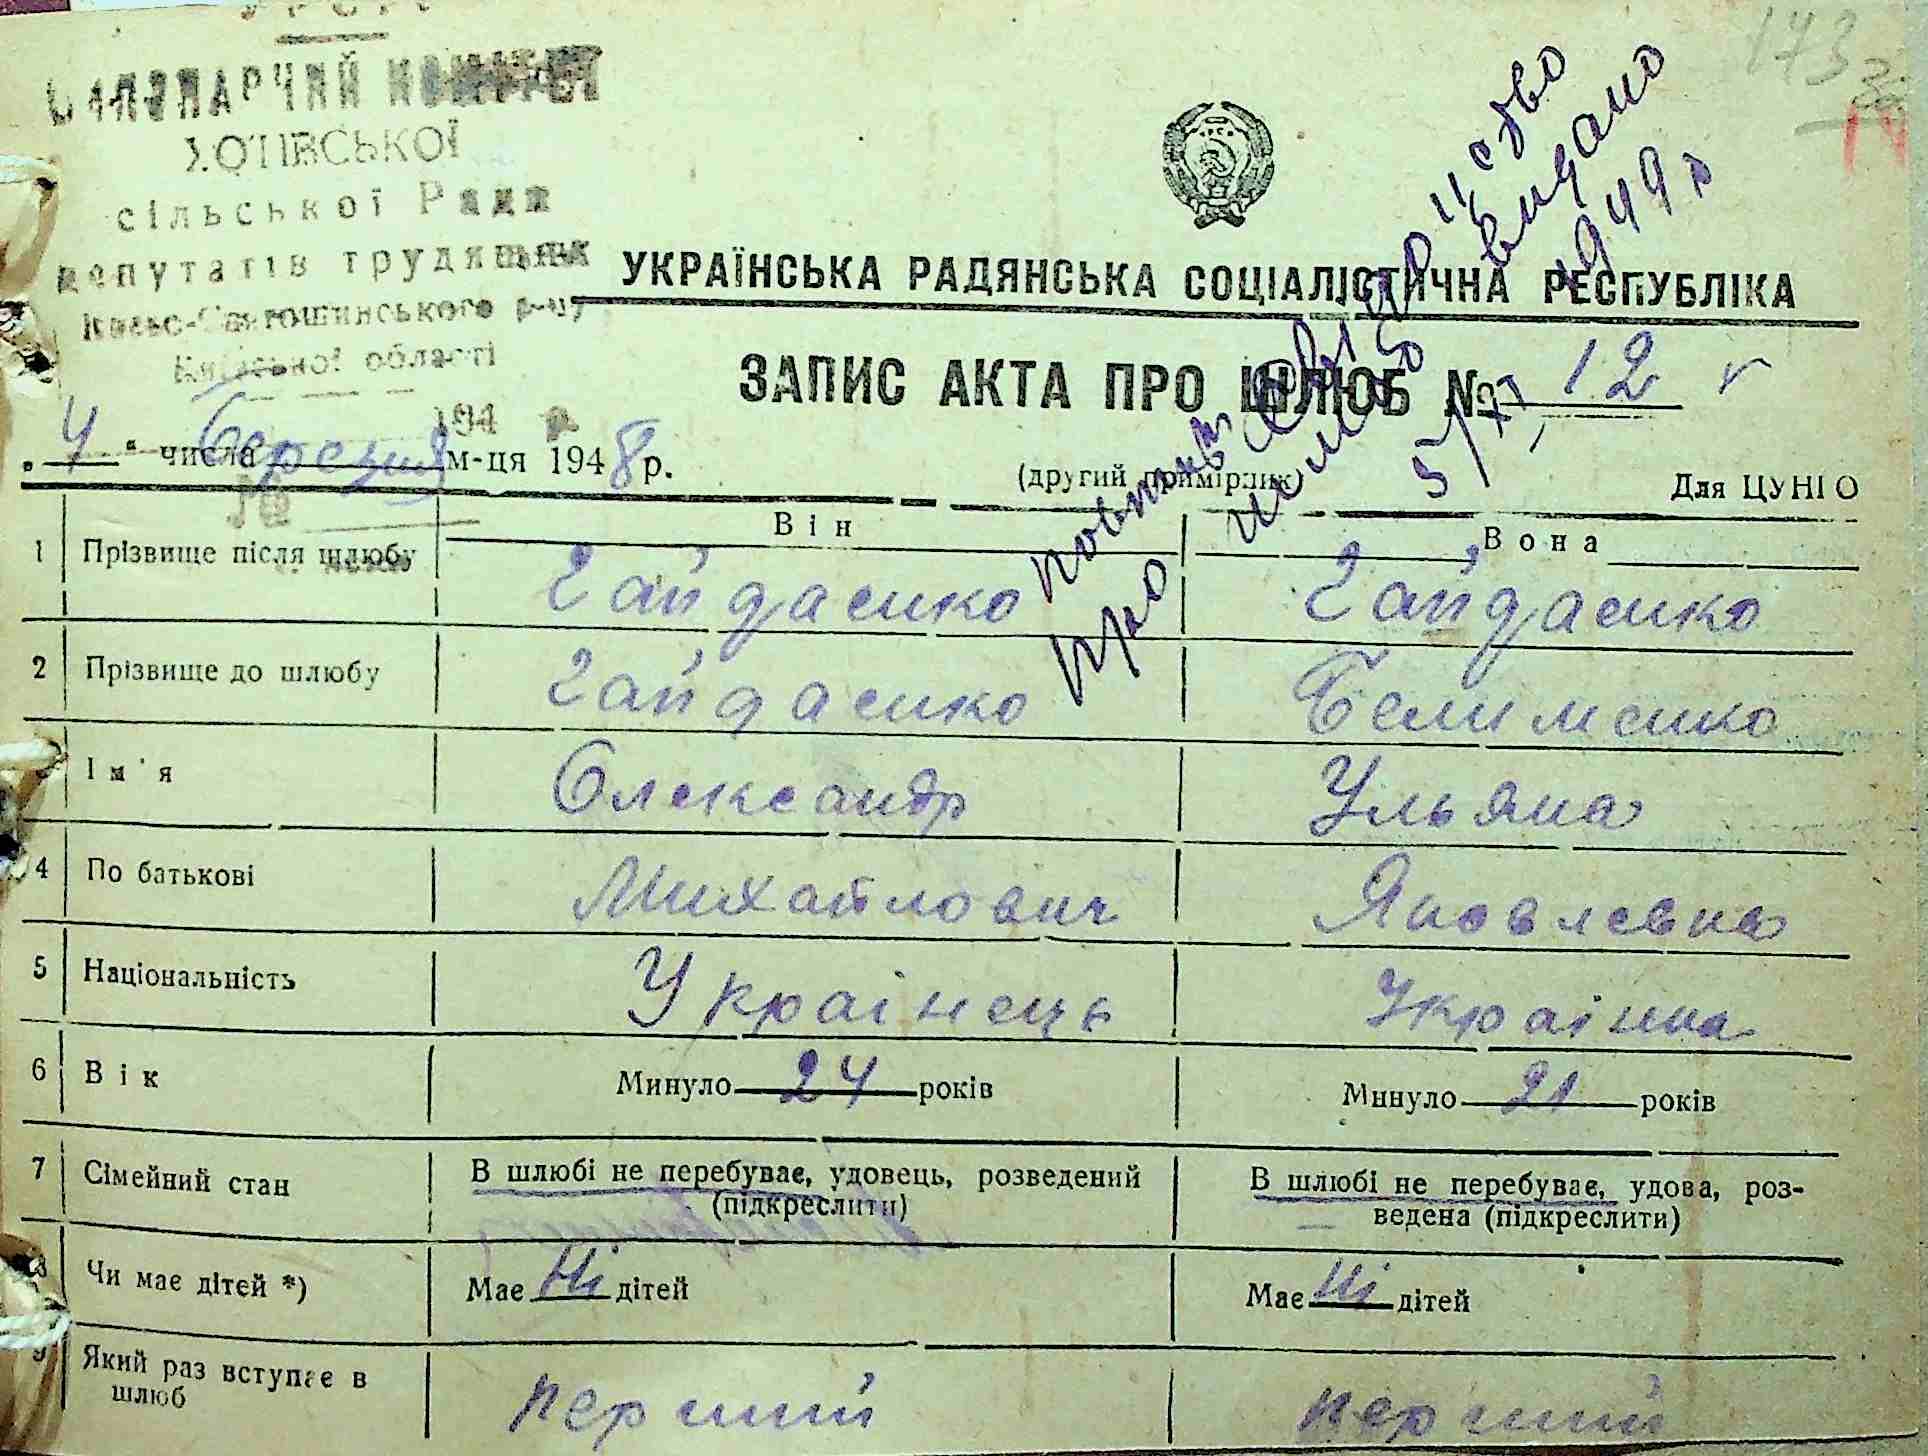 УРСР
ВИКОНАВЧИЙ КОМІТЕТ
ХОТІВСЬКОЇ
сільської Ради
депутатів трудящих
Києво-Святошинського р-ну
Київської області
194 р.
№
173
УКРАЇНСЬКА РАДЯНСЬКА СОЦІАЛІСТИЧНА РЕСПУБЛІКА
ЗАПИС АКТА ПРО ШЛЮБ № 12
"4" числа Березня м-ця 1948 р.
(другий примірник)
Для ЦУНГО
повторне свідоцтво
про шлюб видано
5/XI 1949 р
Він Вона
1 Прізвище після шлюбу Гайдаенко Гайдаенко
2 Прізвище до шлюбу Гайдаенко Белименко
3 Ім'я Олександр Ульяна
4 По батькові Михайлович Яковлевна
5 Національність Українець Українка
6 Вік Минуло 24 років Минуло 21 років
7 Сімейний стан В шлюбі не перебуває, удовець, розведений (підкреслити) В шлюбі не перебуває, удова, роз-
ведена (підкреслити)
8 Чи має дітей *) Має Ні дітей Має Ні дітей
9 Який раз вступає в шлюб перший перший